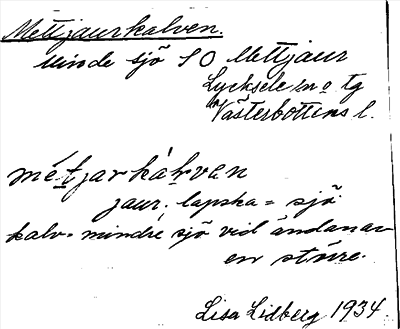 Mettjaurkalven.
minde sjö S O Mettjaur
Lycksele sn o tg
Västerbottens l.
métjarkàrvan
jaur: lapska = sjö
kalv = mindre sjö vid ändan av
en större.
Lisa Lidberg 1934.